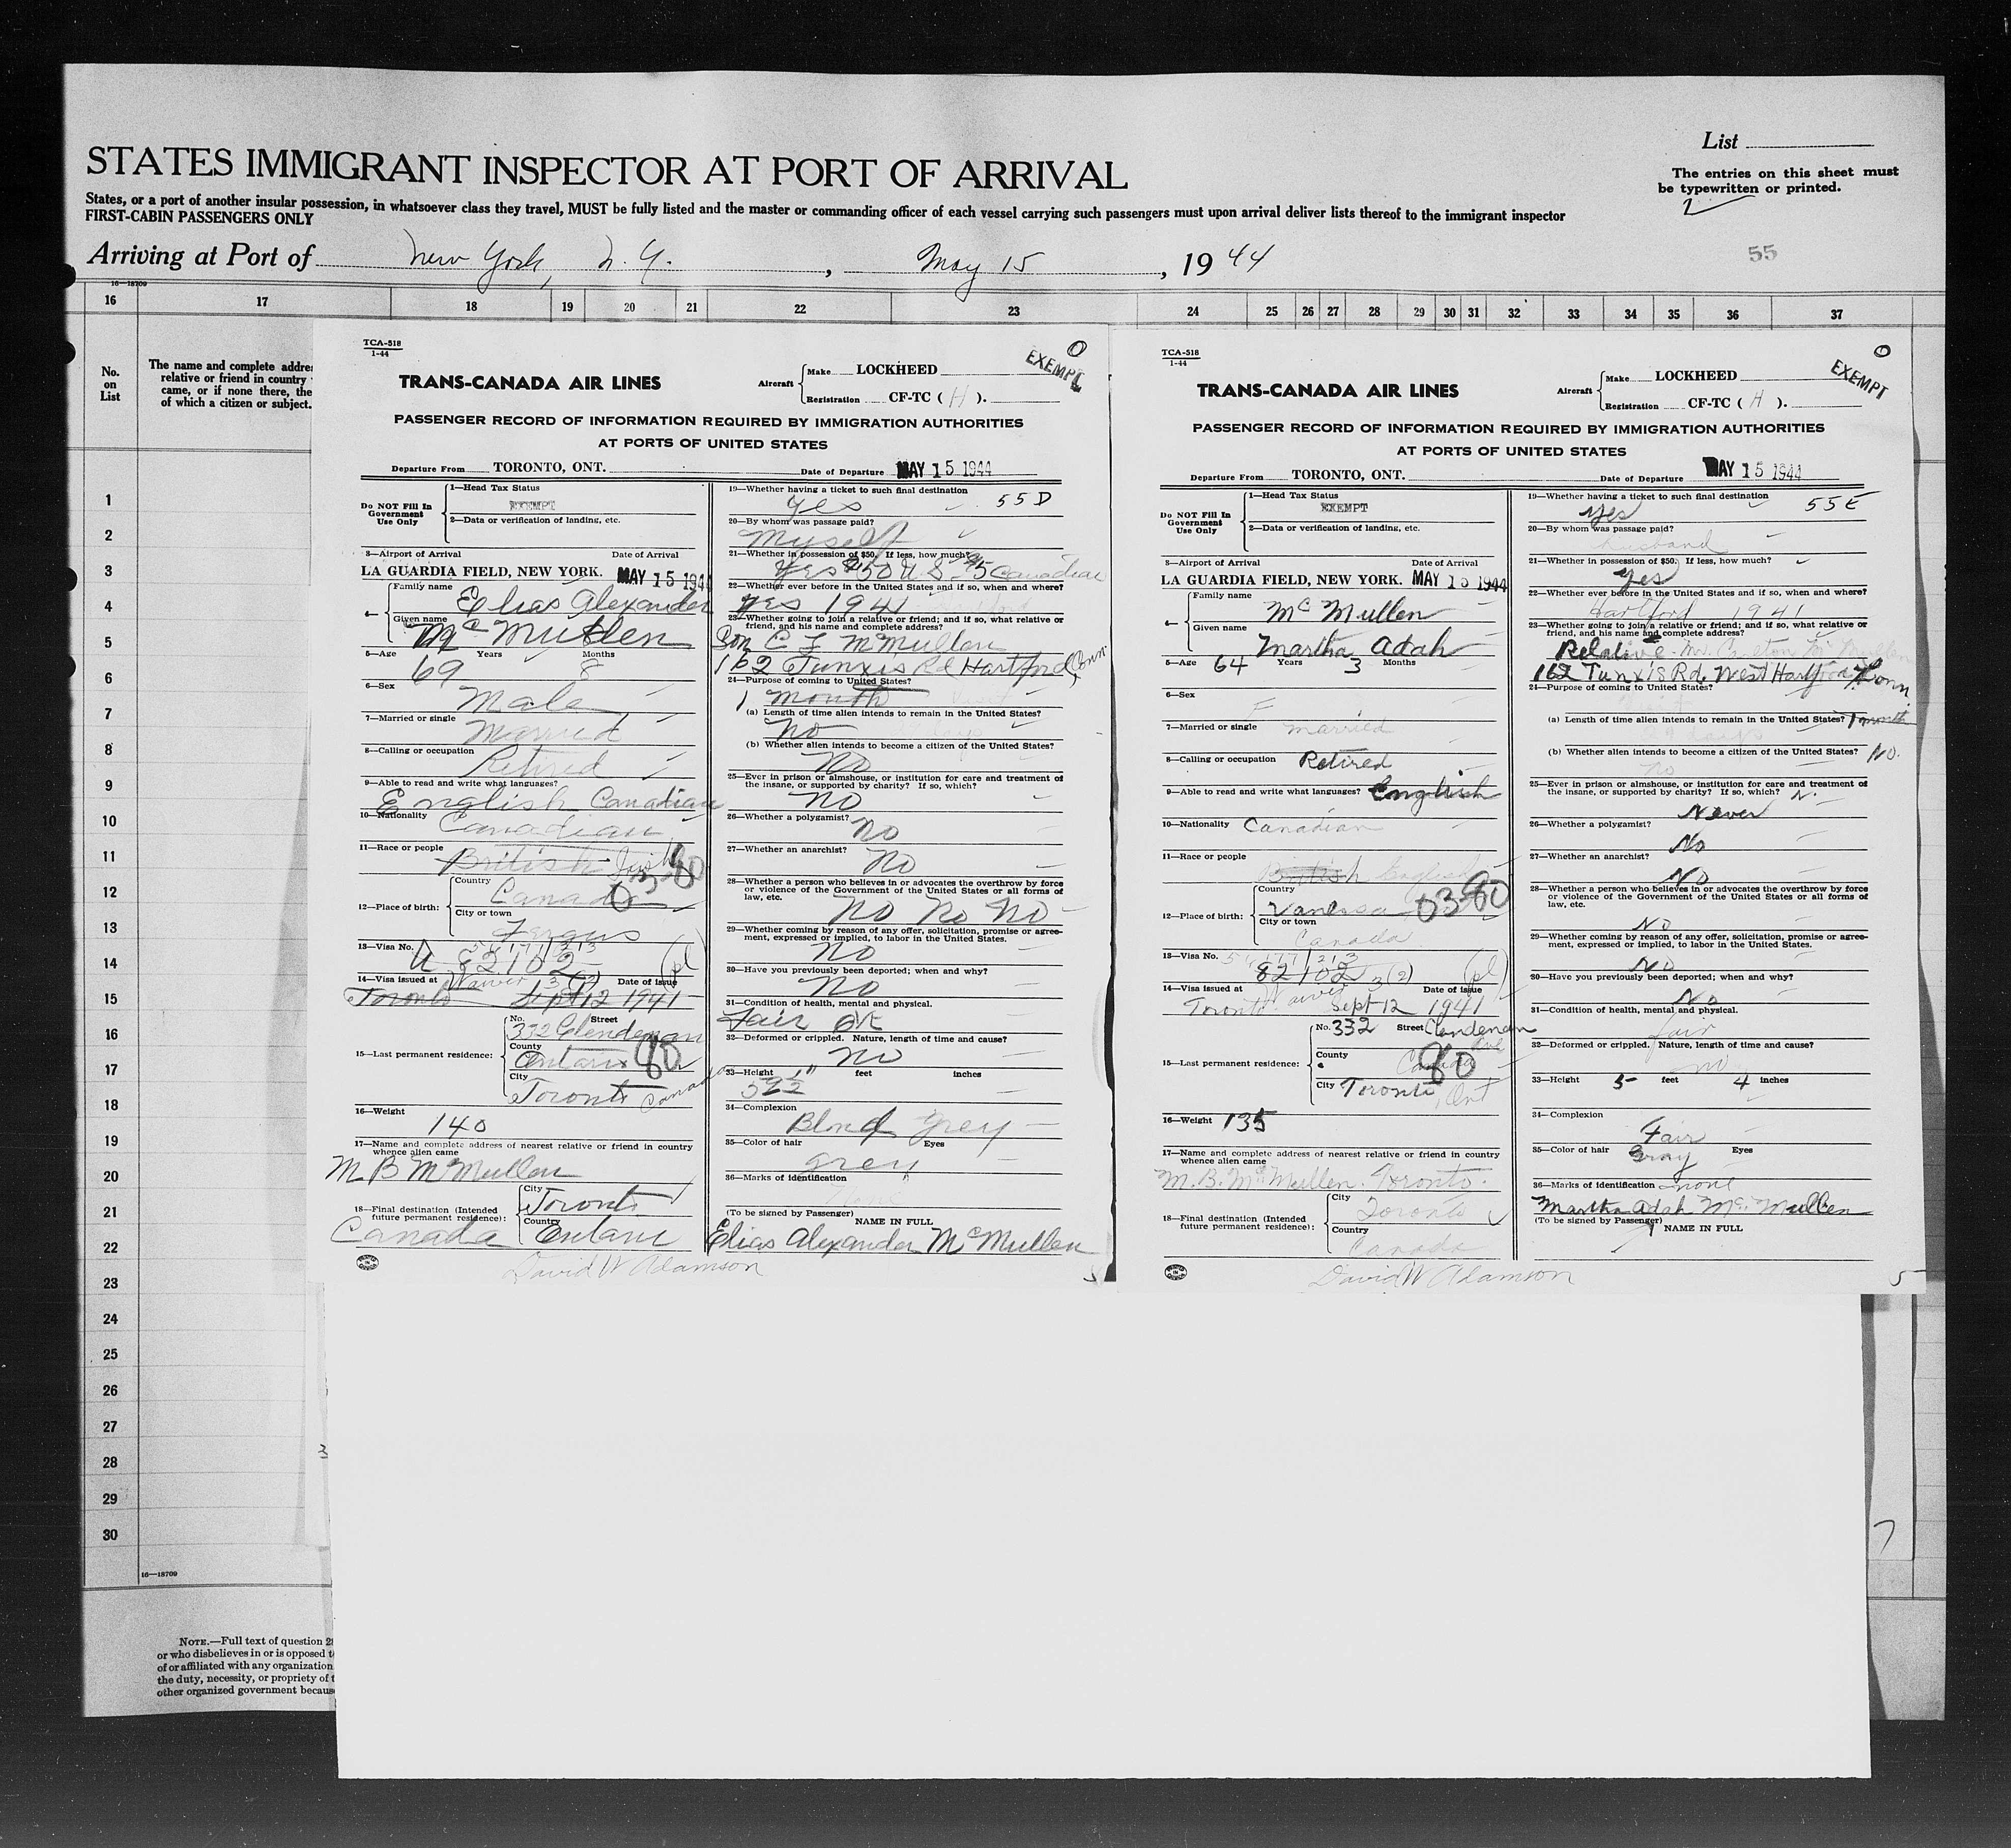 STATES IMMIGRANT INSPECTOR AT PORT OF ARRIVAL
List
The entries on this sheet must
be typewritten or printed.
2
States, or a port of another insular possession, in whatsoever class they travel, MUST be fully listed and the master or commanding officer of each vessel carrying such passengers must upon arrival deliver lists thereof to the immigrant inspector
FIRST-CABIN PASSENGERS ONLY
Arriving at Port of New York, N.Y. , May 15 , 1944
55
16—18709
16 17 18 19 20 21 22 23 24 25 26 27 28 29 30 31 32 33 34 35 36 37
No.
on
List
The name and complete addre
relative or friend in country
came, or if none there, the
of which a citizen or subject.
1
2
3
4
5
6
7
8
9
10
11
12
13
14
15
16
17
18
19
20
21
22
23
24
25
26
27
28
29
30
16—18709
NOTE.—Full text of question 2
or who disbelieves in or is opposed t
of or affiliated with any organization
the duty, necessity, or propriety of t
other organized government becaus
TCA-518
1-44
EXEMPT
TRANS-CANADA AIR LINES
Aircraft
Make LOCKHEED
Registration CF-TC ( H ).
PASSENGER RECORD OF INFORMATION REQUIRED BY IMMIGRATION AUTHORITIES
AT PORTS OF UNITED STATES
Departure From TORONTO, ONT. Date of Departure MAY 15 1944
Do NOT Fill In
Government
Use Only
1—Head Tax Status
EXEMPT
2—Data or verification of landing, etc.
3—Airport of Arrival Date of Arrival
LA GUARDIA FIELD, NEW YORK. MAY 15 1944
4— Family name Elias Alexander
Given name McMullen
5—Age 69 Years 8 Months
6—Sex Male
7—Married or single Married
8—Calling or occupation Retired
9—Able to read and write what languages?
English Canadian
10—Nationality Canadian
11—Race or people British Irish
03-80
12—Place of birth: Country Canada
City or town Fergus
13—Visa No. 82102
14—Visa issued at Waiver Date of issue
Toronto Sept 12 1941
15—Last permanent residence: No. Street
332 Clendenan
County Ontario 80
City Toronto Canada
16—Weight 140
17—Name and complete address of nearest relative or friend in country
whence alien came
M B McMullen
18—Final destination (Intended
future permanent residence):
City Toronto
Country Ontario
Canada
David W Adamson
19—Whether having a ticket to such final destination
Yes 55D
20—By whom was passage paid?
Myself
21—Whether in possession of $50. If less, how much?
Yes $50 U.S. $5 Canadian
22—Whether ever before in the United States and if so, when and where?
Yes 1941
23—Whether going to join a relative or friend; and if so, what relative or
friend, and his name and complete address?
Son C F McMullen
162 Tunxis Rd Hartford, Conn.
24—Purpose of coming to United States?
1 month
(a) Length of time alien intends to remain in the United States?
No
(b) Whether alien intends to become a citizen of the United States?
No
25—Ever in prison or almshouse, or institution for care and treatment of
the insane, or supported by charity? If so, which?
No
26—Whether a polygamist? No
27—Whether an anarchist? No
28—Whether a person who believes in or advocates the overthrow by force
or violence of the Government of the United States or all forms of
law, etc.
No No No
29—Whether coming by reason of any offer, solicitation, promise or agree-
ment, expressed or implied, to labor in the United States.
No
30—Have you previously been deported; when and why?
No
31—Condition of health, mental and physical.
Fair OK
32—Deformed or crippled. Nature, length of time and cause?
No
33—Height feet inches
34—Complexion Blond Grey
35—Color of hair Eyes
grey
36—Marks of identification
(To be signed by Passenger) NAME IN FULL
Elias Alexander McMullen
TCA-518
1-44
EXEMPT
TRANS-CANADA AIR LINES
Aircraft
Make LOCKHEED
Registration CF-TC ( H ).
PASSENGER RECORD OF INFORMATION REQUIRED BY IMMIGRATION AUTHORITIES
AT PORTS OF UNITED STATES
Departure From TORONTO, ONT. Date of Departure MAY 15 1944
Do NOT Fill In
Government
Use Only
1—Head Tax Status
EXEMPT
2—Data or verification of landing, etc.
3—Airport of Arrival Date of Arrival
LA GUARDIA FIELD, NEW YORK. MAY 15 1944
4— Family name McMullen
Given name Martha Adah
5—Age 64 Years 3 Months
6—Sex F
7—Married or single married
8—Calling or occupation Retired
9—Able to read and write what languages? English
10—Nationality Canadian
11—Race or people British English
03-80
12—Place of birth: Country Vanessa
City or town Canada
13—Visa No. 82102
14—Visa issued at Waiver Date of issue
Toronto Sept 12 1941
15—Last permanent residence: No. 332 Street Clendenan Ave
County Canada 80
City Toronto, Ont
16—Weight 135
17—Name and complete address of nearest relative or friend in country
whence alien came
M. B. McMullen. Toronto.
18—Final destination (Intended
future permanent residence):
City Toronto
Country Canada
David W Adamson
19—Whether having a ticket to such final destination
Yes 55E
20—By whom was passage paid?
husband
21—Whether in possession of $50. If less, how much?
Yes
22—Whether ever before in the United States and if so, when and where?
Hartford 1941
23—Whether going to join a relative or friend; and if so, what relative or
friend, and his name and complete address?
Relative - Mr. Carlton McMullen
162 Tunxis Rd. West Hartford Conn
24—Purpose of coming to United States?
(a) Length of time alien intends to remain in the United States? 1 month
29 days
(b) Whether alien intends to become a citizen of the United States? No.
no
25—Ever in prison or almshouse, or institution for care and treatment of
the insane, or supported by charity? If so, which? N.
Never
26—Whether a polygamist?
No
27—Whether an anarchist?
No
28—Whether a person who believes in or advocates the overthrow by force
or violence of the Government of the United States or all forms of
law, etc.
No
29—Whether coming by reason of any offer, solicitation, promise or agree-
ment, expressed or implied, to labor in the United States.
No
30—Have you previously been deported; when and why?
No
31—Condition of health, mental and physical.
fair
32—Deformed or crippled. Nature, length of time and cause?
no
33—Height 5 feet 4 inches
34—Complexion
Fair
35—Color of hair Gray Eyes
36—Marks of identification none
Martha Adah McMullen
(To be signed by Passenger) NAME IN FULL
5